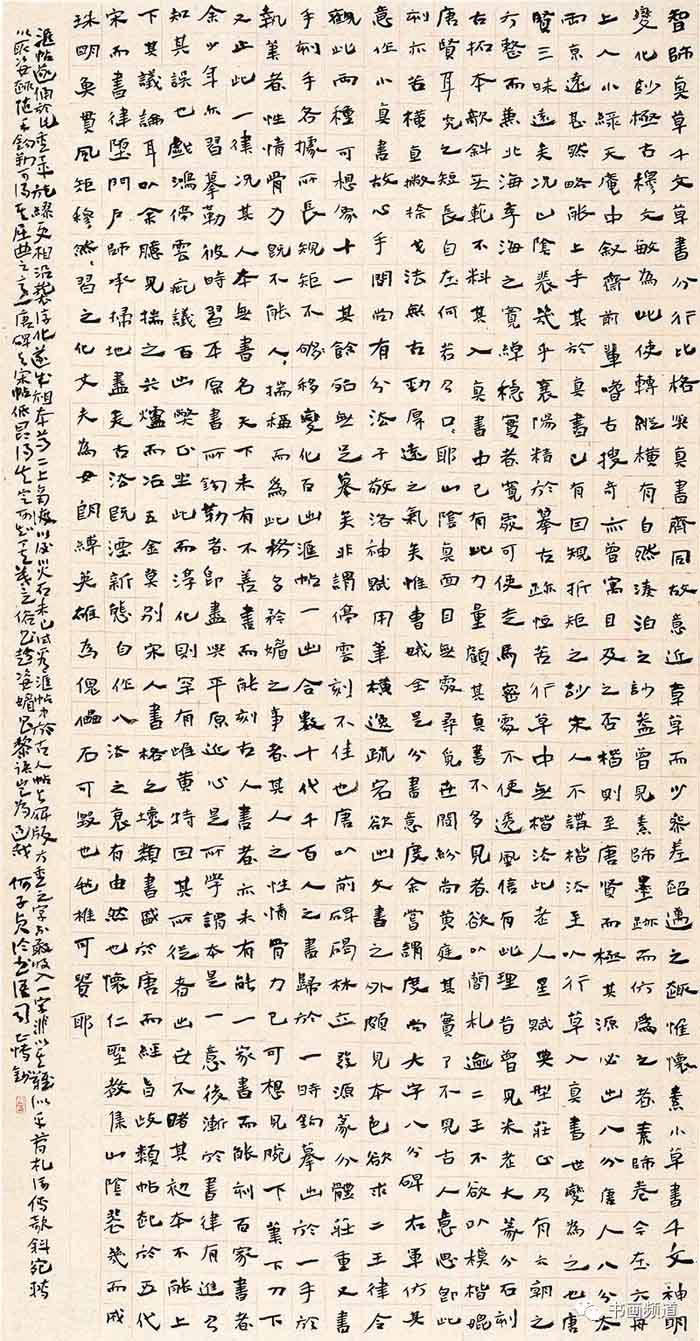 智師真草千文草書分行比格與真書齊同故意近章草而少參差超邁之趣惟懷素小草書千文神明
變化妙極古穆文敏為此使轉縱橫有自然湊泊之妙蓋曾見素師墨跡而仿為之者素師卷今在六舟
上人小綠天庵中敘齋前輩嗜古搜奇亦曾寓目及之否楷則至唐賢而極其源必出八分唐人八分去
兩京遠甚然略能上手其於真書已有因規折矩之妙宋人不講楷法至以行草入真書世變為之也唐
賢三昧遠矣況山陰裴几乎襄陽精於摹古跡恒苦行草中無楷法此老人星賦典型莊正乃有六朝之
方整而兼北海季海之寬綽穩實者寬處可使走馬密處不使透風信有此理昔曾見米老大篆分石刻
古拓本欹斜無範不料其入真書由已有此力量顧其真書不多見者欲以簡札逾二王不欲以模楷
唐賢耳究之短長自在何若耶山陰真面目無處尋覓世間紛尚黃庭其實了不見古人意思即此
刻亦若橫直撇捺戈法無古勁厚遠之氣矣惟曹娥全是分書意度余嘗謂度尚大字八分碑右軍仿其
意作小真書故心手間尚有分法子敬洛神賦用筆橫逸疏宕欲出文書之外頗見本色欲求二王律令
觀此兩種可想像十一其餘殆無足摹矣非謂停雲刻不佳也唐以前碑碣林立發源篆分體莊重又書
手刻手各據所長規矩不能移變化百出滙帖一出合數十代千百人之書歸於一時鉤摹出於一手於
執筆者性情骨力既不能人人揣稱而為此務多矜媚之事者其人之性情骨力已可想見腕下筆下刀下
又止此一律況其人本無書名天下未有不善書而能刻古人書者亦未有能一家書而能刻百家書者
余少年亦習摹勒彼時習平原書所鉤勒者即盡與平原近心是所學謂本是一意後漸於書律有進乃
知其誤也戲鴻停雲疵議百出獘正坐此而淳化則罕有雌黃特因其所從者出世不睹其初本不能上
下其議論耳以余臆見揣之共爐而冶五金莫別宋人書格之壞類書盛於唐而經旨歧類帖起於五代
宋而書律墮門戶師承掃地盡矣古法既湮新態自作八法之衰有由然也懷仁聖教集山陰裴几而成
珠明魚貫風矩穆然習之化丈夫為女郎縛英雄為傀儡石可毀也氈椎可贅耶
何子貞論書語
书画频道